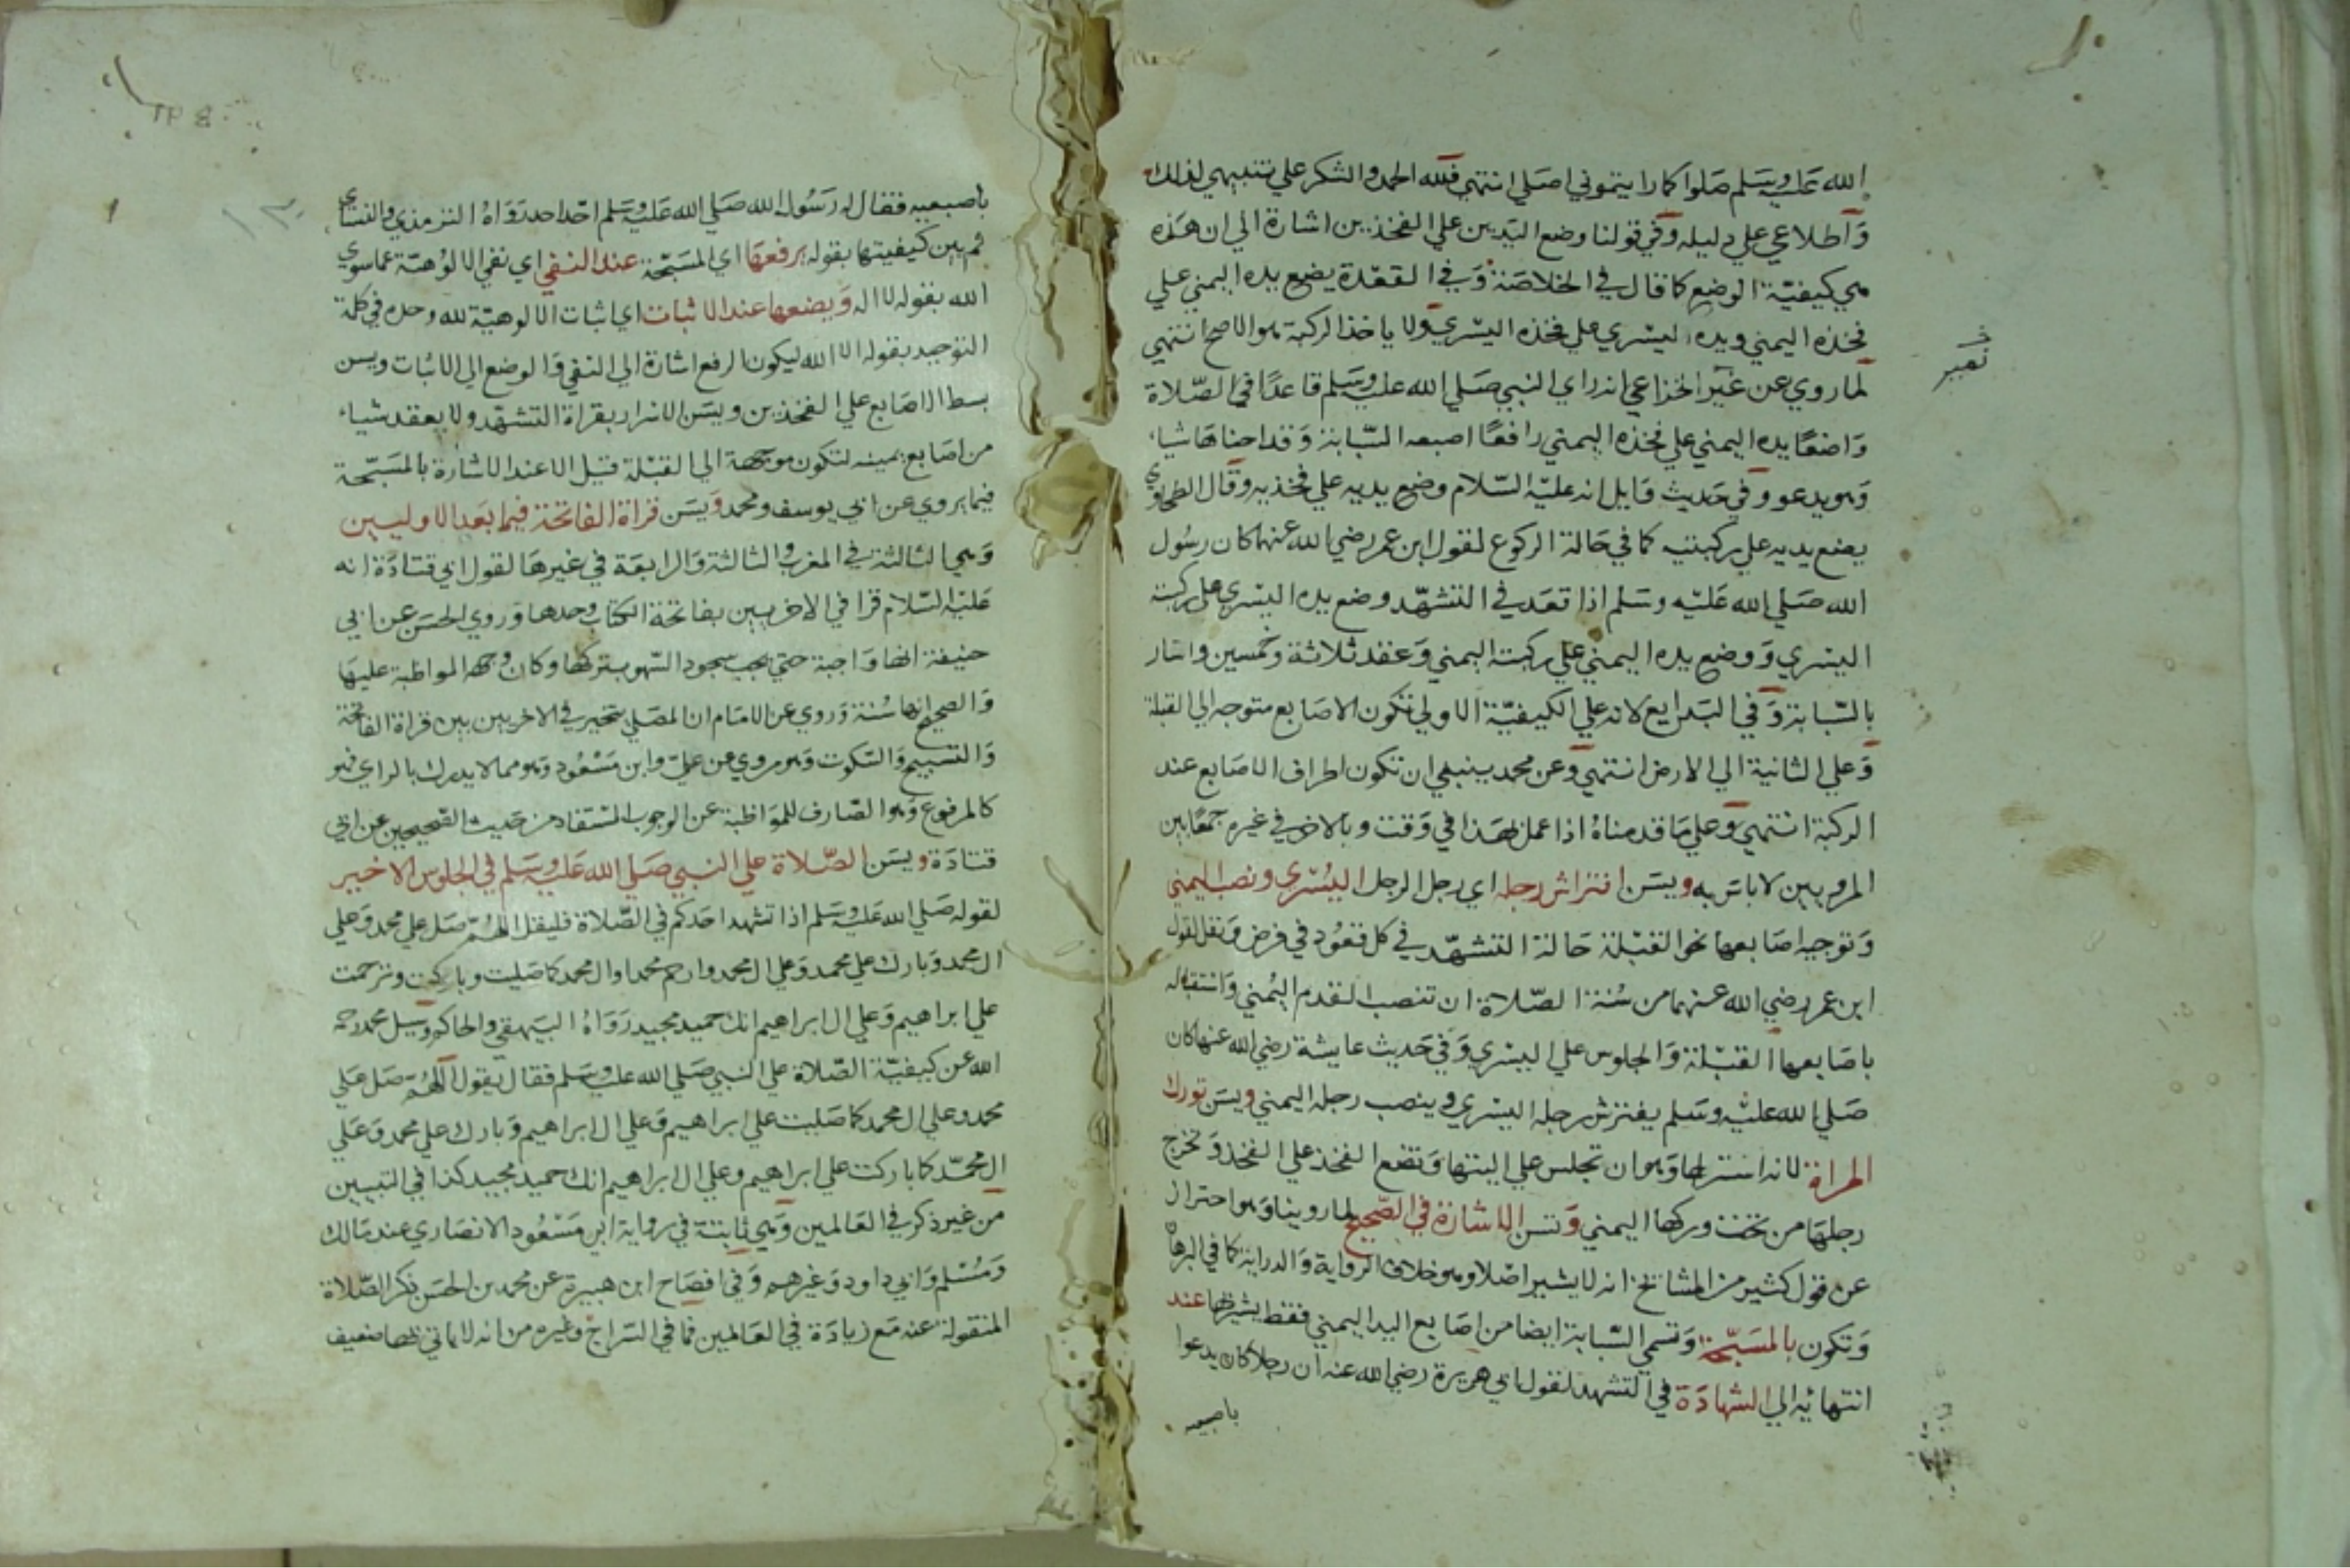 الله عليه وسلم صلوا كما رايتموني اصلي انتهي فلله الحمد والشكر علي تنبيهي لذلك
واطلاعي علي دليله وفي قولنا وضع اليدين علي الفخذين اشارة الي ان هذه
هي كيفية الوضع كما قال في الخلاصة وفي القعدة يضع يده اليمني علي
فخذه اليمني ويده اليسري علي فخذه اليسري ولا ياخذ الركبة هو الاصح انتهي
لما روي عن نمير الخزاعي انه راي النبي صلي الله عليه وسلم قاعدا في الصلاة
نمير
واضعا يده اليمني علي فخذه اليمني رافعا اصبعه السبابة وقد احناها شيا
وهو يدعو وفي حديث وايل انه عليه السلام وضع يديه علي فخذيه وقال الطحاوي
يضع يديه علي ركبتيه كما في حالة الركوع لقول ابن عمر رضي الله عنهما كان رسول
الله صلي الله عليه وسلم اذا قعد في التشهد وضع يده اليسري علي ركبته
اليسري ووضع يده اليمني علي ركبته اليمني وعقد ثلاثة وخمسين واشار
بالسبابة وفي البدايع لانه علي الكيفية الاولي تكون الاصابع متوجه الي القبلة
وعلي الثانية الي الارض انتهي وعن محمد ينبغي ان تكون اطراف الاصابع عند
الركبة انتهي وعلي ما قدمناه اذا عمل بهذا في وقت وبالاخر في غيره جمعا بين
المرويين لا باس به ويسن افتراش رجله اي رجل الرجل اليسري ونصب اليمني
وتوجيه اصابعها نحو القبلة حالة التشهد في كل قعود في فرض ونفل لقول
ابن عمر رضي الله عنهما من سنة الصلاة ان تنصب القدم اليمني واستقباله
باصابعها القبلة والجلوس علي اليسري وفي حديث عايشة رضي الله عنها كان
صلي الله عليه وسلم يفترش رجله اليسري وينصب رجله اليمني ويسن تورك
المراة لانه استر لها وهو ان تجلس علي اليتها وتضع الفخذ علي الفخذ وتخرج
رجلها من تحت وركها اليمني وتسن الاشارة في الصحيح لما روينا وهو احتراز
عن قول كثير من المشائخ انه لا يشير اصلا وهو خلاف الرواية والدراية كما في البرهان
وتكون بالمسبحة وتسمي السبابة ايضا من اصابع اليد اليمني فقط يشير بها عند
انتهائه الي الشهادة في التشهد لقول ابي هريرة رضي الله عنه ان رجلا كان يدعوا
باصبعيه
باصبعيه فقال له رسول الله صلي الله عليه وسلم احد احد رواه الترمذي والنسائي
ثم بين كيفيتها بقوله يرفعها اي المسبحة عند النفي اي نفي الالوهية عما سوي
الله بقوله لا اله ويضعها عند الاثبات اي اثبات الالوهية لله وحده في كلمة
التوحيد بقوله الا الله ليكون الرفع اشارة الي النفي والوضع الي الاثبات ويسن
بسط الاصابع علي الفخذين ويسن الاسرار بقراة التشهد ولا يعقد شياء
من اصابع يمينه لتكون موجهة الي القبلة قيل الا عند الاشارة بالمسبحة
فيما يروي عن ابي يوسف ومحمد ويسن قراة الفاتحة فيما بعد الاوليين
وهي الثالثة في المغرب والثالثة والرابعة في غيرها لقول ابي قتادة انه
عليه السلام قرا في الاخريين بفاتحة الكتاب وحدها وروي الحسن عن ابي
حنيفة انها واجبة حتي يجب سجود السهو بتركها وكان وجهه المواظبة عليها
والصحيح انها سنة وروي عن الامام ان المصلي يتخير في الاخريين بين قراة الفاتحة
والتسبيح والسكوت وهو مروي عن علي وابن مسعود وهو مما لا يدرك بالراي فهو
كالمرفوع وهو الصارف للمواظبة عن الوجوب المستفاد من حديث الصحيحين عن ابي
قتادة ويسن الصلاة علي النبي صلي الله عليه وسلم في الجلوس الاخير
لقوله صلي الله عليه وسلم اذا تشهد احدكم في الصلاة فليقل اللهم صل علي محمد وعلي
ال محمد وبارك علي محمد وعلي ال محمد وارحم محمدا وال محمد كما صليت وباركت وترحمت
علي ابراهيم وعلي ال ابراهيم انك حميد مجيد رواه البيهقي والحاكم وسيل محمد رحمه
الله عن كيفية الصلاة علي النبي صلي الله عليه وسلم فقال يقول اللهم صل علي
محمد وعلي ال محمد كما صليت علي ابراهيم وعلي ال ابراهيم وبارك علي محمد وعلي
ال محمد كما باركت علي ابراهيم وعلي ال ابراهيم انك حميد مجيد كذا في التبيين
من غير ذكر في العالمين وهي ثابتة في رواية ابي مسعود الانصاري عند مالك
ومسلم وابي داود وغيرهم وفي افصاح ابن هبيرة عن محمد بن الحسن ذكر الصلاة
المنقولة عنه مع زيادة في العالمين فما في السراج وغيره من انه لا ياتي بها ضعيف